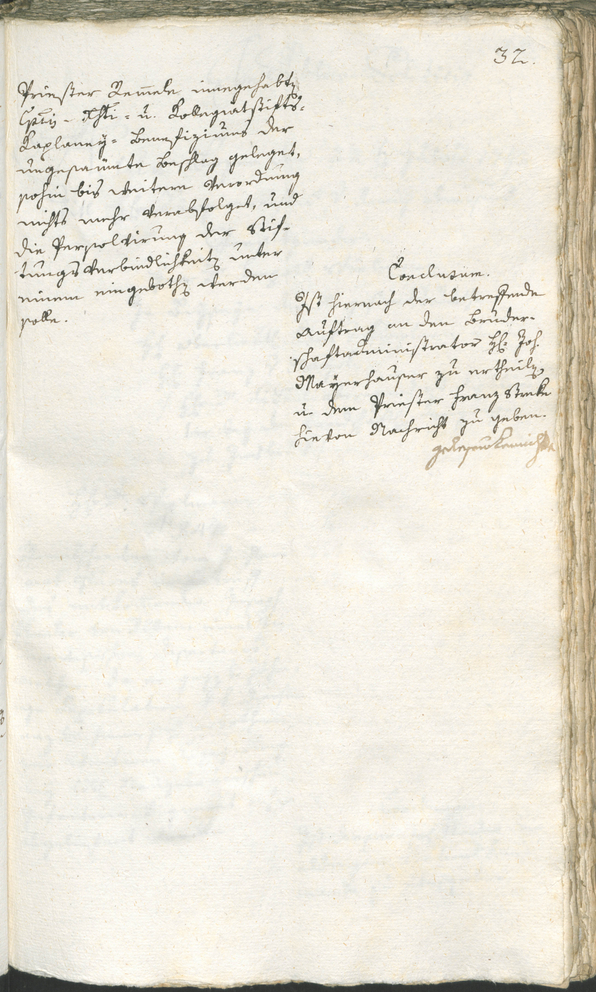 32.
Priester Remele innegehabten
Corporis - Xsti - u. Kollegiatstifts-
Kaplaney-Benefiziums der
ungesaumte Beschlag geleget,
sohin bis weitere Verordnung
nichts mehr verabfolget, und
die Persolvirung der Stif-
tungsverbindlichkeiten unter
einem eingebothen werden
solle.
Conclusum.
Ist hiernach der betreffende
Auftrag an den Bruder-
schaftadministrator H. Joh.
Mayrhauser zu ertheilen,
u. dem Priester Franz
hievon Nachricht zu geben.